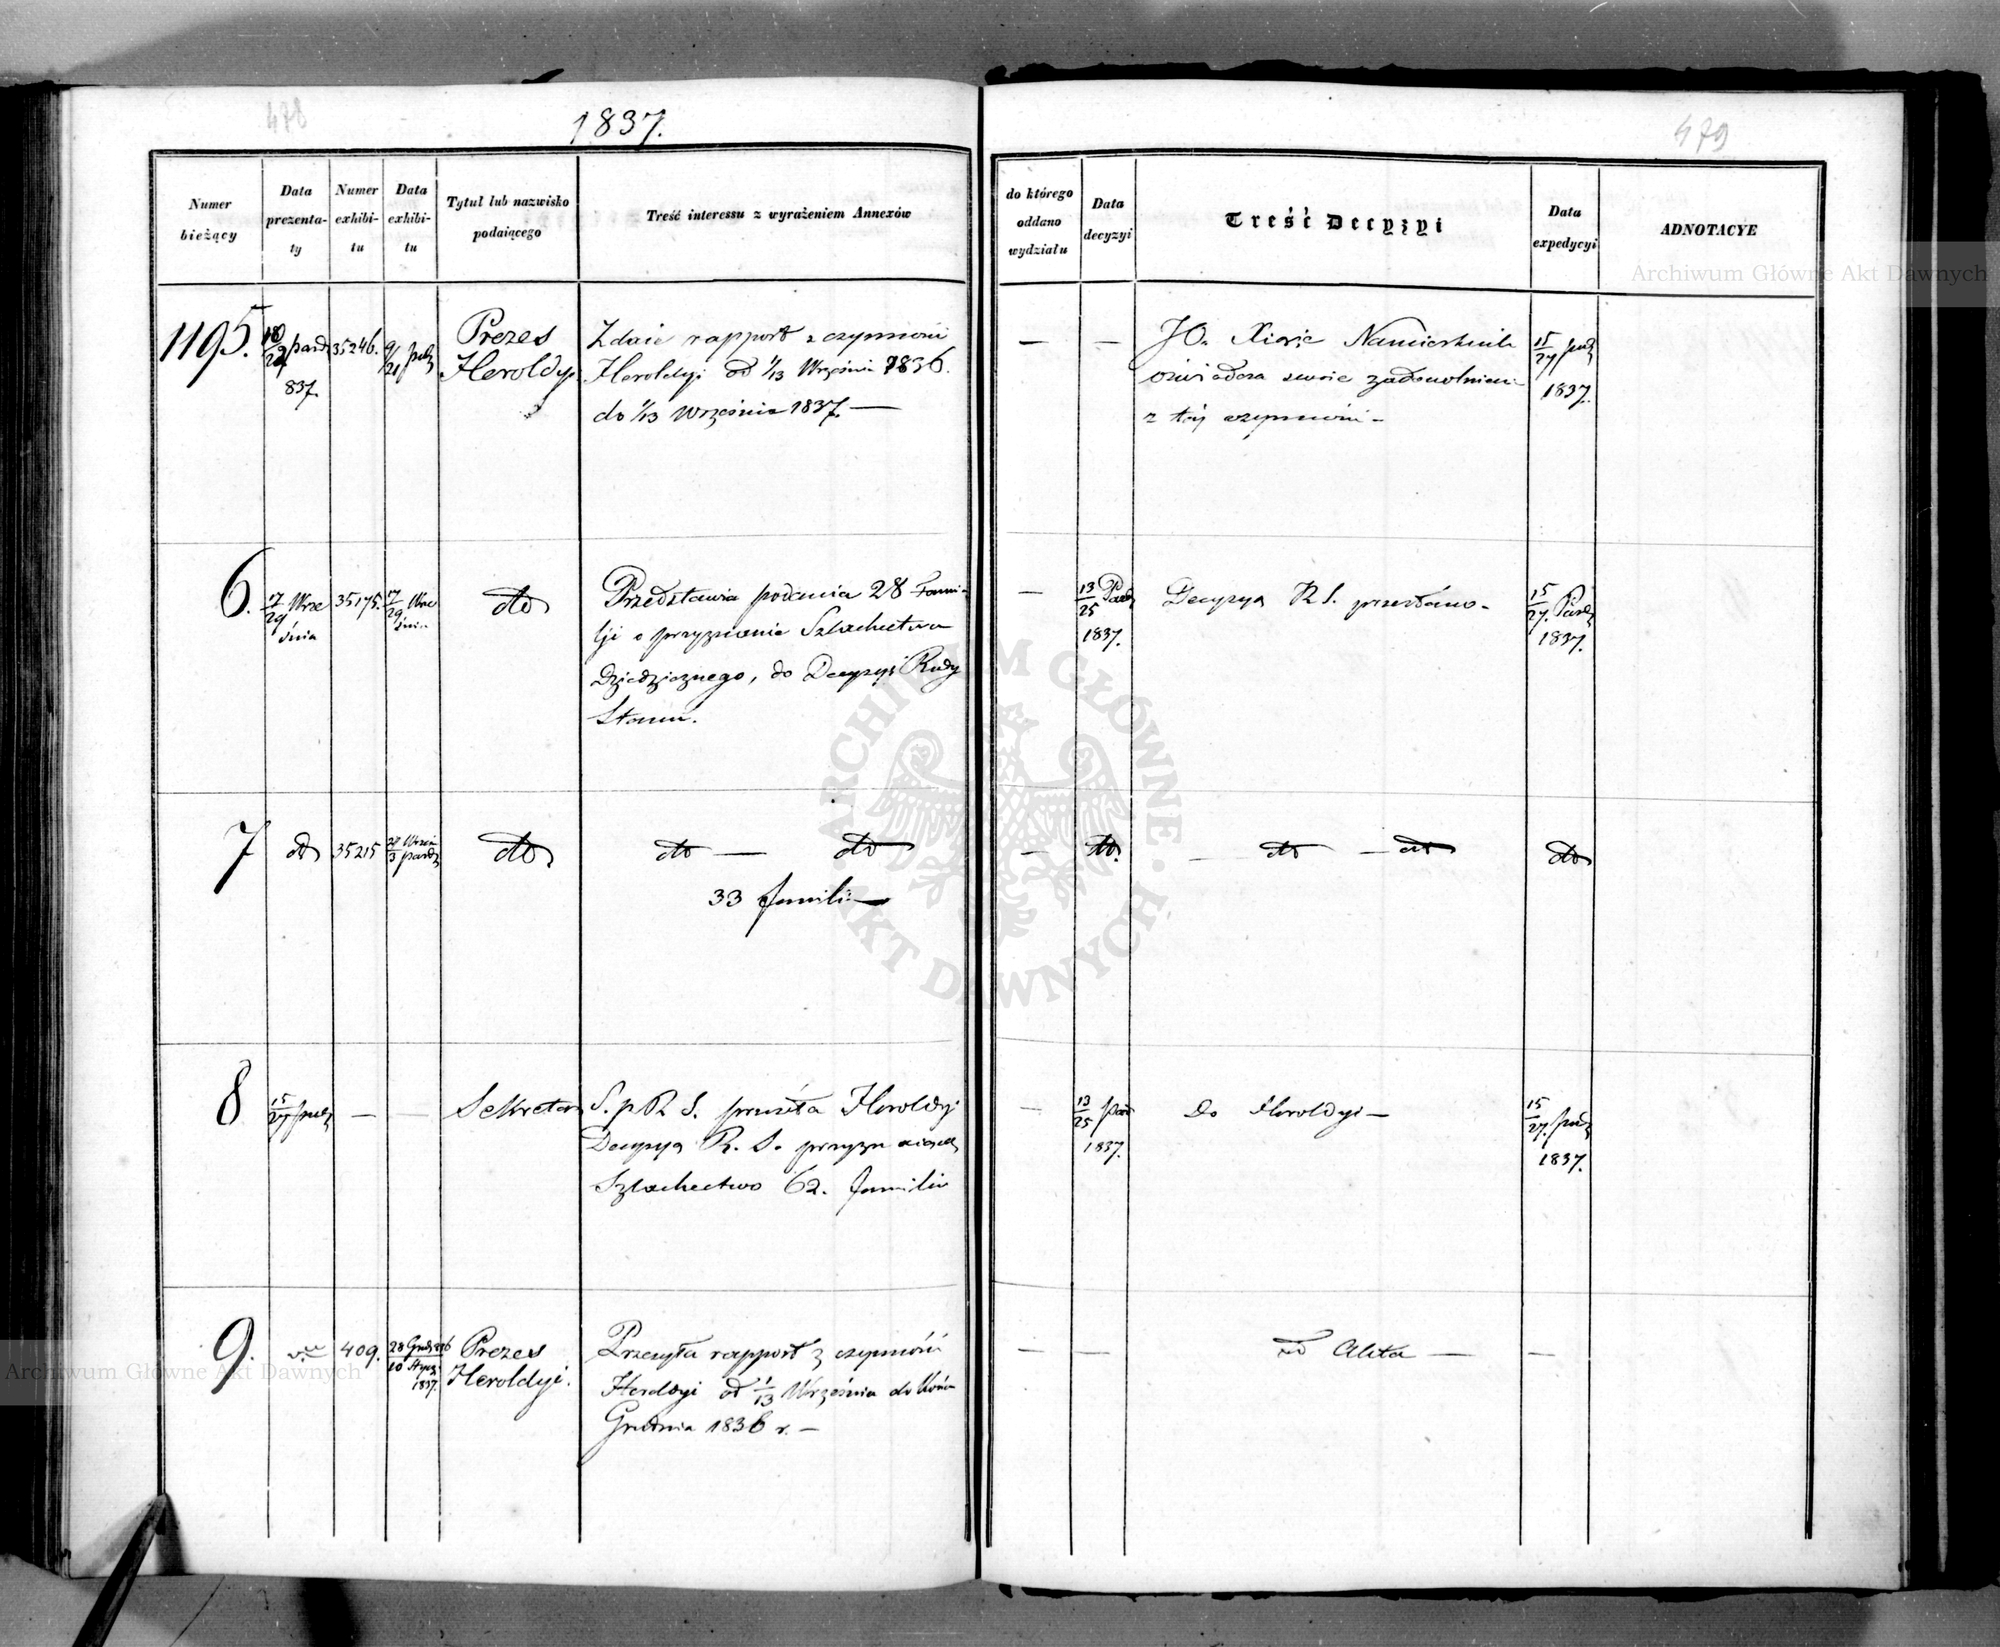 478
1837.
Numer bieżący
Data prezenta-ty
Numer exhibi-tu
Data exhibi-tu
Tytuł lub nazwisko podaiącego
Treść interessu z wyrażeniem Annexów
1195.
18/29 Paźdz 837.
35246.
9/21 paźdz
Prezes
Heroldyi
Zdaie rapport z czynności
Heroldyi od 1/13 Września 1836.
do 1/13 Września 1837. —
6.
17/29 Wrze
śnia
35175.
17/29 Wrze
śnia
dto
Przedstawia podania 28 Fami-
lji o przyznanie Szlachectwa
Dziedzicznego, do Decyzyi Rady
Stanu.
7
dto
35215
dto
dto — dto
33 familii —
8
15/27 paźdz
—
—
Sekretarz
S. p R S. przesyła Heroldyi
Decyzya R. S. przyznaiące
Szlachectwo 62. familiom
9.
409.
28 Grud 836
10 Stycz.
1837.
Prezes
Heroldyi.
Przesyła rapport z czynności
Heroldyi od 1/13 Września do końca
Grudnia 1836 r. —
479
do którego oddano wydziału
Data decyzyi
Treść Decyzyi
Data expedycyi
ADNOTACYE
—
—
JO. Xiąże Namiestnik
oświadcza swoie zadowolnienie
z téj czynności —
15/27 paźdz
1837.
—
13/25 Paźdz
1837.
Decyzya R S. przesłano —
15/27. Paźdz
1837.
—
dto.
— dto — dto
dto
—
13/25 Paźdz
1837.
Do Heroldyi —
15/27. paźdz
1837.
—
—
ad Akta —
—
Archiwum Główne Akt Dawnych
Archiwum Główne Akt Dawnych
ARCHIWUM GŁÓWNE
AKT DAWNYCH